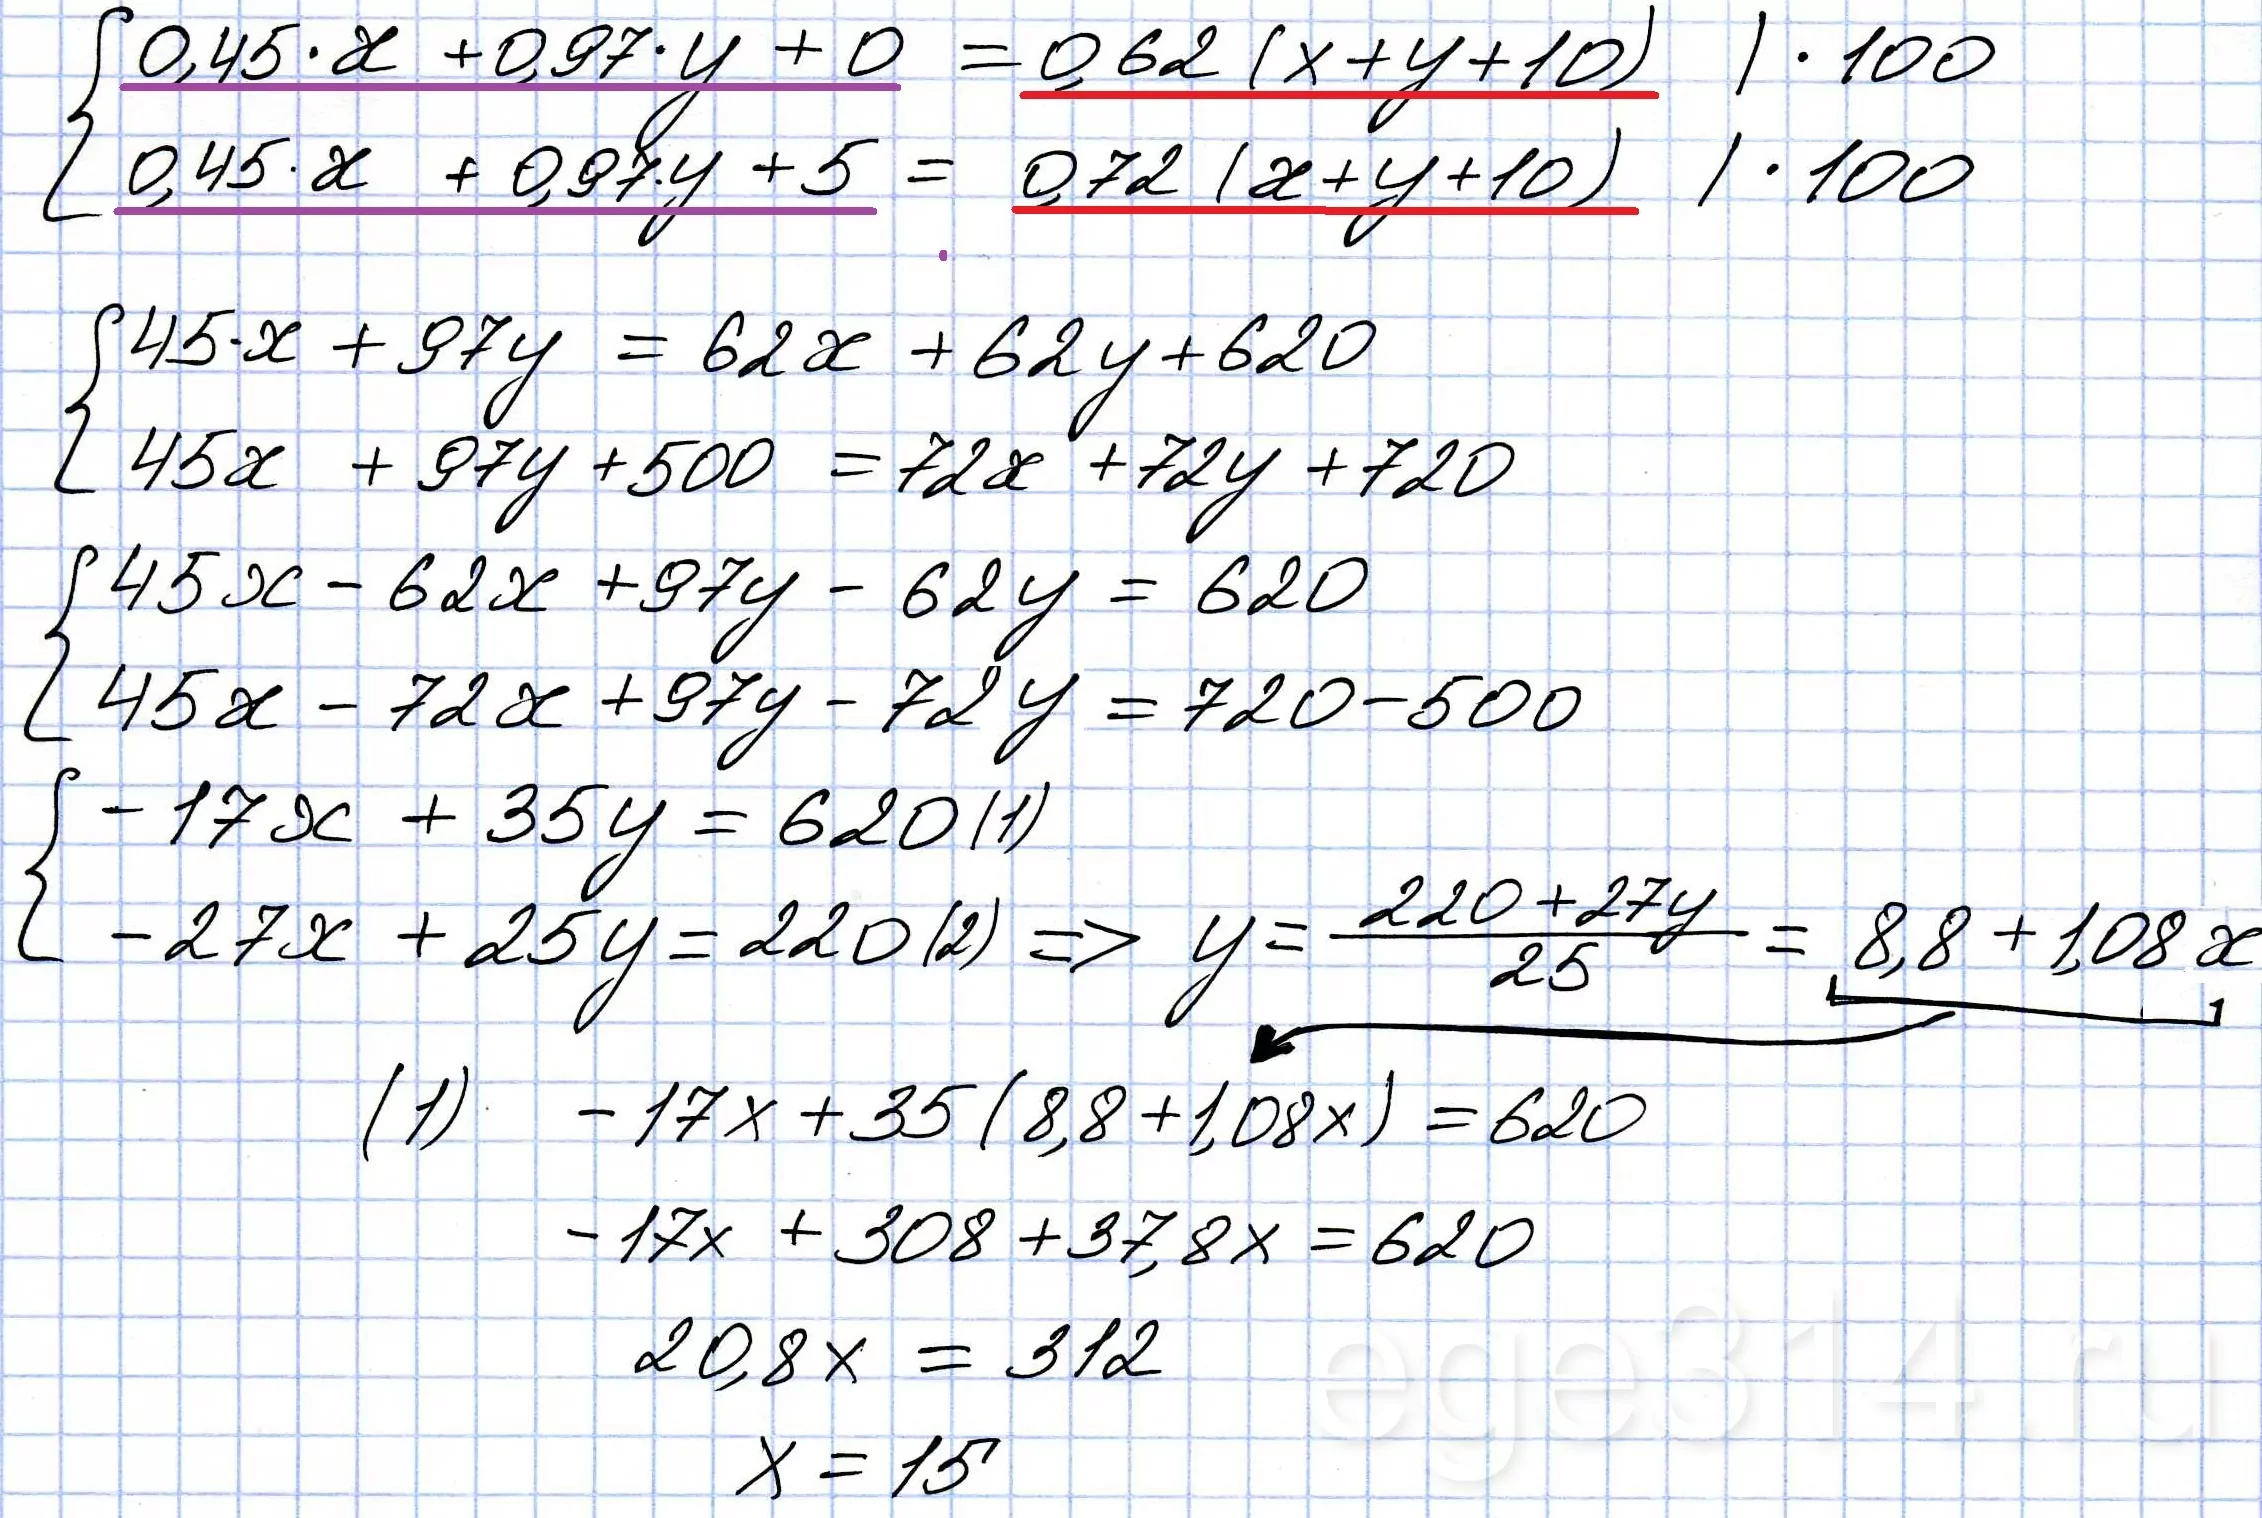 0,45·x + 0,97·y + 0 = 0,62(x+y+10) | · 100
0,45·x + 0,97·y + 5 = 0,72(x+y+10) | · 100
45·x + 97y = 62x + 62y + 620
45x + 97y + 500 = 72x + 72y + 720
45x - 62x + 97y - 62y = 620
45x - 72x + 97y - 72y = 720 - 500
-17x + 35y = 620 (1)
-27x + 25y = 220 (2) => y = (220 + 27y)/25 = 8,8 + 1,08x
(1) -17x + 35(8,8 + 1,08x) = 620
-17x + 308 + 37,8x = 620
20,8x = 312
x = 15
ege314.ru